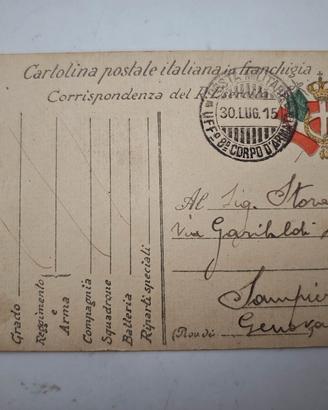 Cartolina postale italiana in franchigia
Corrispondenza del R. Esercito
POSTA MILITARE
30.LUG.15
UFFº 8º CORPO D'ARMATA
Al Sig. Stora
Via Garibaldi
Sampier
(Prov. di Genova
Grado
Reggimento
e
Arma
Compagnia
Squadrone
Batteria
Riparti speciali